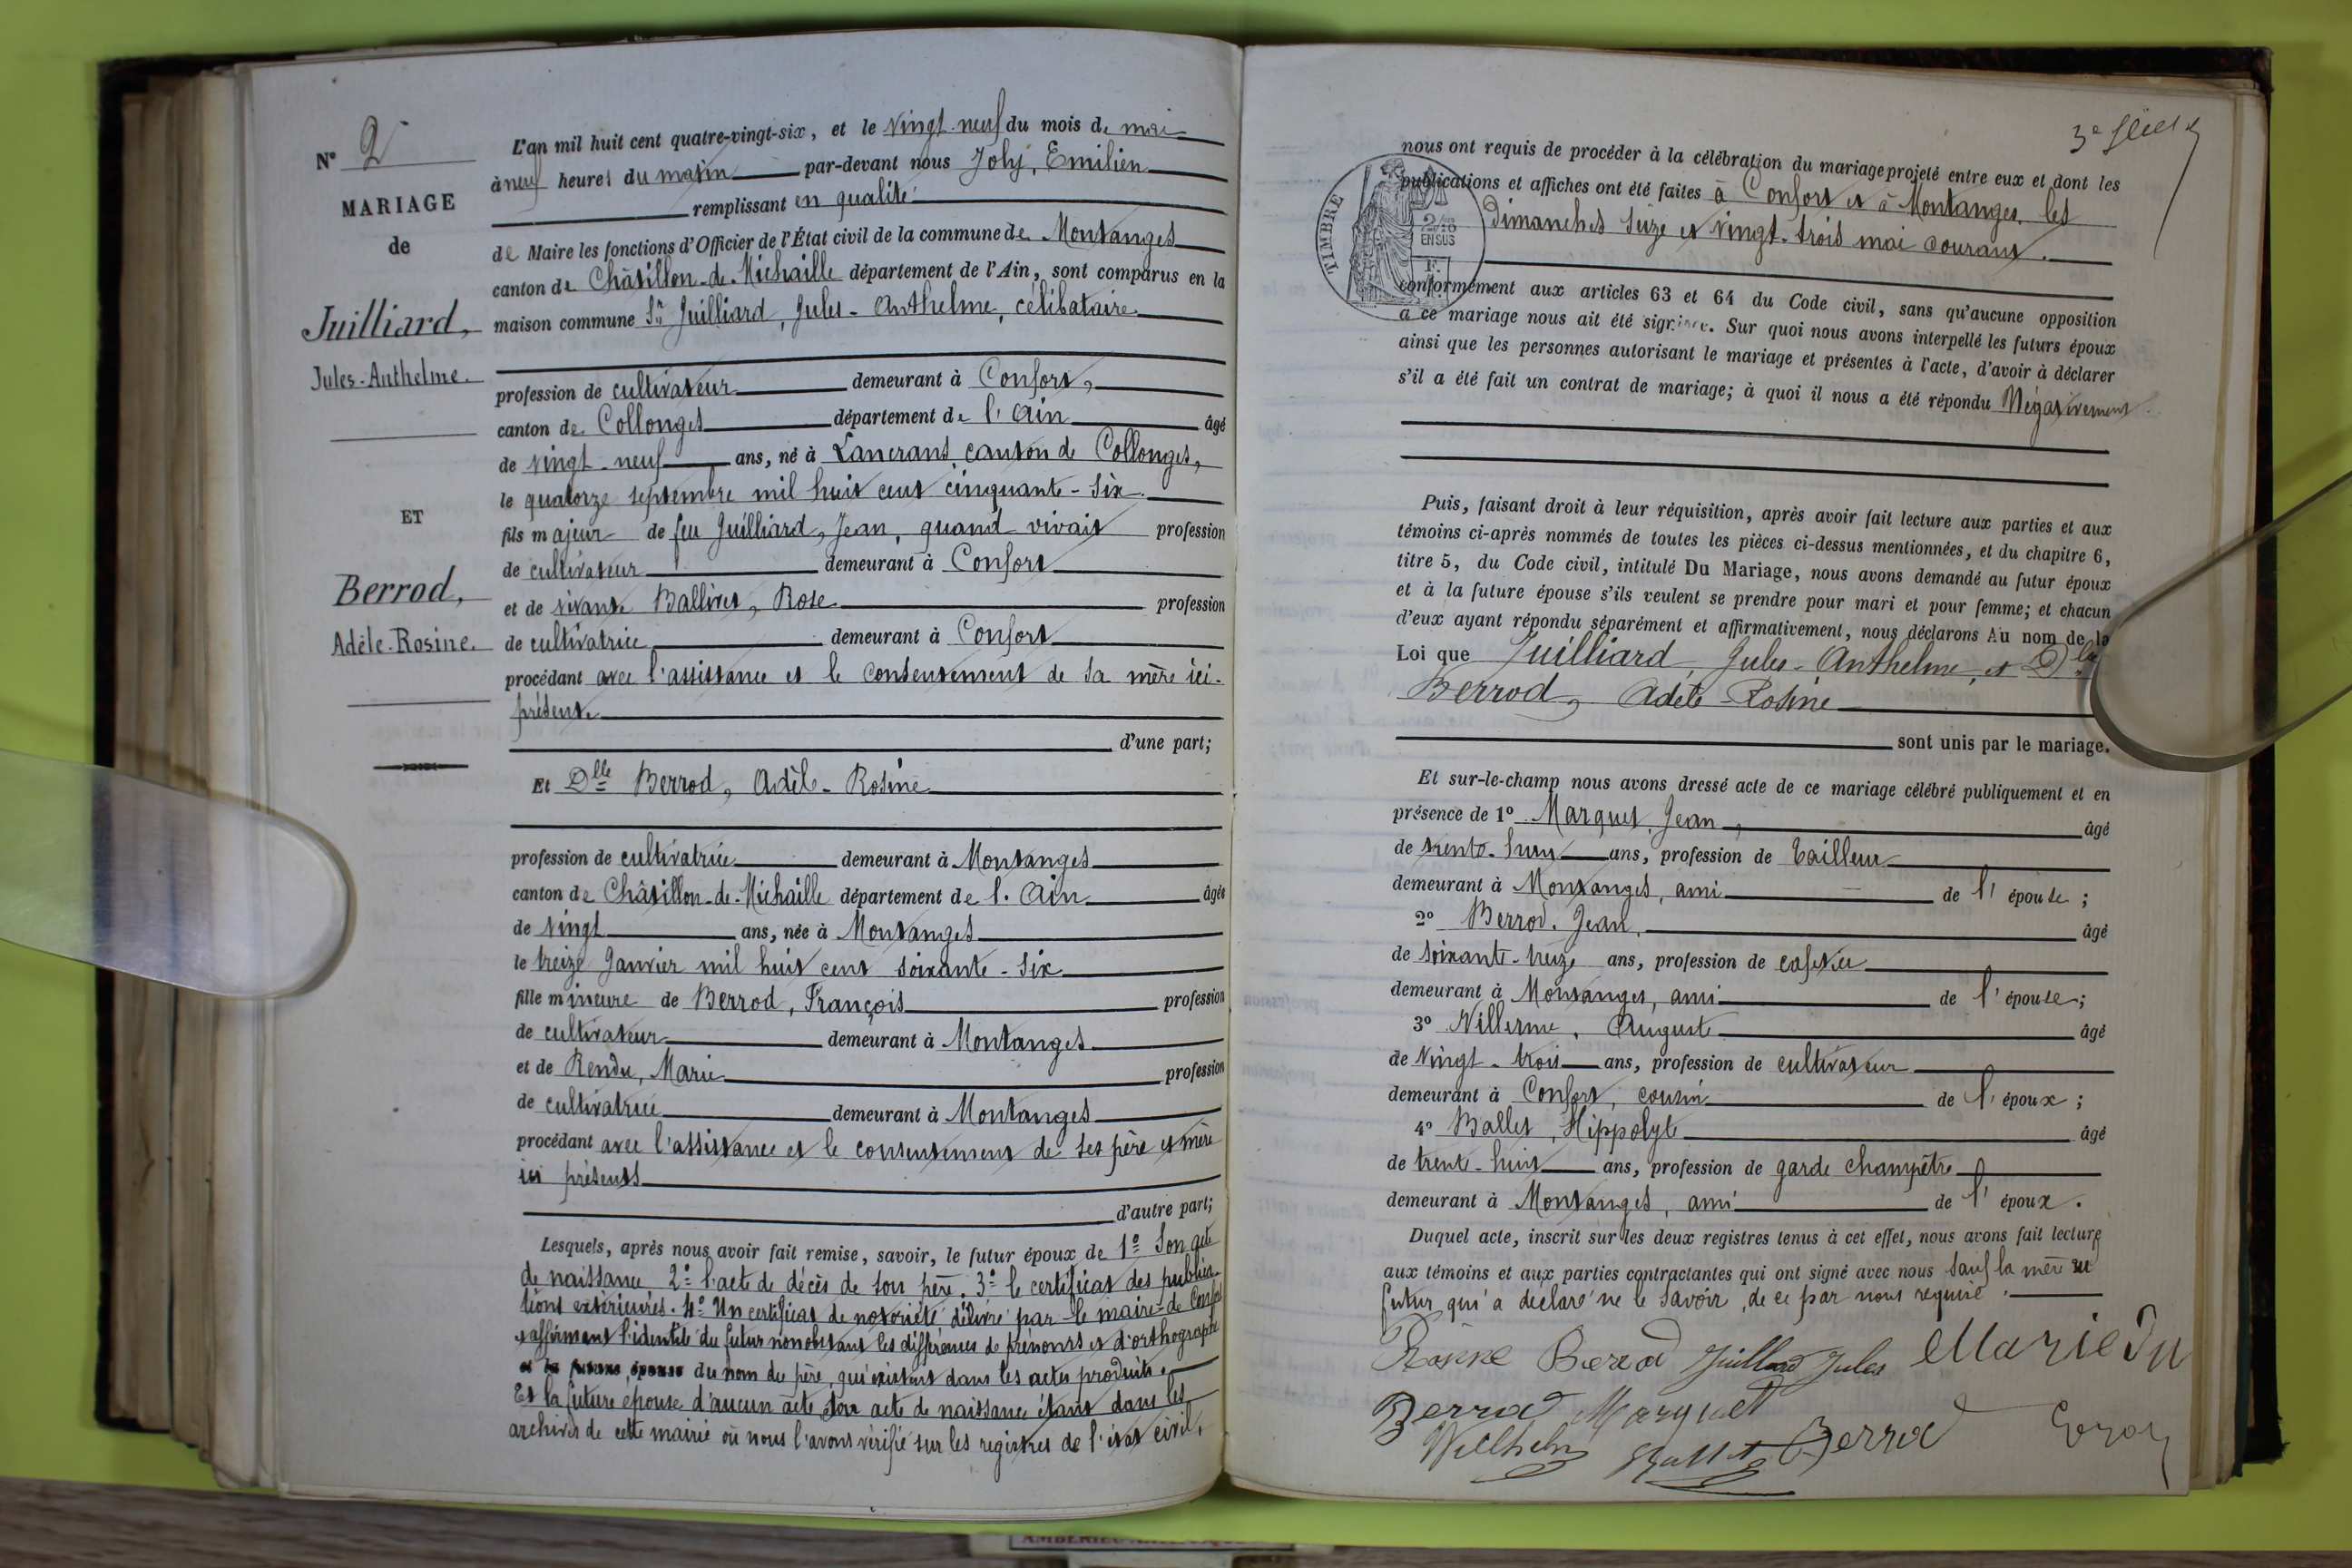 N° 2
MARIAGE
de
Juilliard,
Jules-Anthelme.
ET
Berrod,
Adèle-Rosine.
L'an mil huit cent quatre-vingt-six, et le vingt-neuf du mois de mai
à neuf heures du matin par-devant nous Joly, Emilien
remplissant en qualité
de Maire les fonctions d'Officier de l'État civil de la commune de Montanges
canton de Châtillon-de-Michaille département de l'Ain, sont comparus en la
maison commune Sr Juilliard, Jules-Anthelme, célibataire
profession de cultivateur demeurant à Confort,
canton de Collonges département de l'Ain âgé
de vingt-neuf ans, né à Lancrans canton de Collonges,
le quatorze septembre mil huit cent cinquante-six
fils majeur de feu Juilliard, Jean, quand vivait profession
de cultivateur demeurant à Confort
et de vivante Ballivet, Rose profession
de cultivatrice demeurant à Confort
procédant avec l'assistance et le consentement de sa mère ici-
présente
d'une part;
Et Dlle Berrod, Adèle-Rosine
profession de cultivatrice demeurant à Montanges
canton de Châtillon-de-Michaille département de l'Ain âgée
de vingt ans, née à Montanges
le treize Janvier mil huit cent soixante-six
fille mineure de Berrod, François profession
de cultivateur demeurant à Montanges
et de Rendu, Marie profession
de cultivatrice demeurant à Montanges
procédant avec l'assistance et le consentement de ses père et mère
ici présents
d'autre part;
Lesquels, après nous avoir fait remise, savoir, le futur époux de 1° Son acte
de naissance 2° l'acte de décès de son père. 3° le certificat des publica-
tions extérieures. 4° Un certificat de notoriété délivré par le maire de Confort
affirmant l'identité du futur nonobstant les différences de prénoms et d'orthographe
et la future épouse du nom du père, qui existent dans les actes produits.
Et la future épouse d'aucun acte son acte de naissance étant dans les
archives de cette mairie où nous l'avons vérifié sur les registres de l'état civil,
TIMBRE
2/10
EN SUS
nous ont requis de procéder à la célébration du mariage projeté entre eux et dont les
publications et affiches ont été faites à Confort et à Montanges, les
dimanches seize et vingt-trois mai courant.
conformément aux articles 63 et 64 du Code civil, sans qu'aucune opposition
à ce mariage nous ait été signifiée. Sur quoi nous avons interpellé les futurs époux
ainsi que les personnes autorisant le mariage et présentes à l'acte, d'avoir à déclarer
s'il a été fait un contrat de mariage; à quoi il nous a été répondu Négativement
Puis, faisant droit à leur réquisition, après avoir fait lecture aux parties et aux
témoins ci-après nommés de toutes les pièces ci-dessus mentionnées, et du chapitre 6,
titre 5, du Code civil, intitulé Du Mariage, nous avons demandé au futur époux
et à la future épouse s'ils veulent se prendre pour mari et pour femme; et chacun
d'eux ayant répondu séparément et affirmativement, nous déclarons Au nom de la
Loi que Juilliard, Jules-Anthelme, et Dlle
Berrod, Adèle-Rosine
sont unis par le mariage.
Et sur-le-champ nous avons dressé acte de ce mariage célébré publiquement et en
présence de 1° Marquet, Jean, âgé
de trente-huit ans, profession de tailleur
demeurant à Montanges, ami de l'épouse;
2° Berrod, Jean, âgé
de soixante-treize ans, profession de cafetier
demeurant à Montanges, ami de l'épouse;
3° Villerme, Auguste âgé
de vingt-trois ans, profession de cultivateur
demeurant à Confort, cousin de l'époux;
4° Ballet, Hippolyte âgé
de trente-huit ans, profession de garde champêtre
demeurant à Montanges, ami de l'époux.
Duquel acte, inscrit sur les deux registres tenus à cet effet, nous avons fait lecture
aux témoins et aux parties contractantes qui ont signé avec nous sauf la mère du
futur qui a déclaré ne le savoir, de ce par nous requise.
Berrod Juilliard Jules Marie
Berrod Marquet
Ballet Berrod